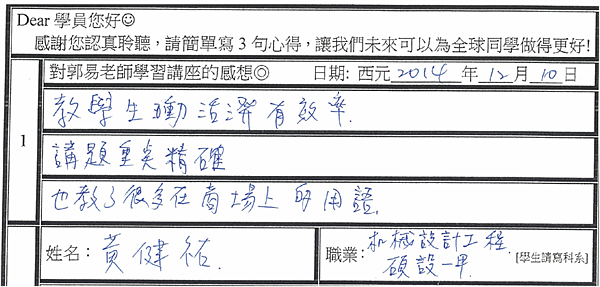 Dear 學員您好☺
感謝您認真聆聽，請簡單寫 3 句心得，讓我們未來可以為全球同學做得更好!
對郭易老師學習講座的感想◎ 日期: 西元 2014 年 12 月 10 日
1
教學生動活潑有效率.
講題重點精確
也教了很多在商場上的用語.
姓名： 黃健祐.
職業： 机械設計工程 碩設一甲. [學生請寫科系]